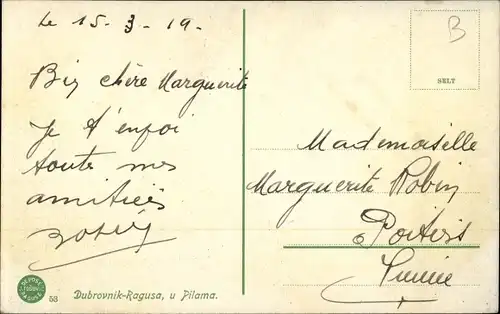 Le 15-3-19.
Bien chère Marguerite
Je t'envoi
toutes mes
amitiées
B
SELT
Mademoiselle
Marguerite Robin
Poitiers
53 Dubrovnik-Ragusa, u Pilama.